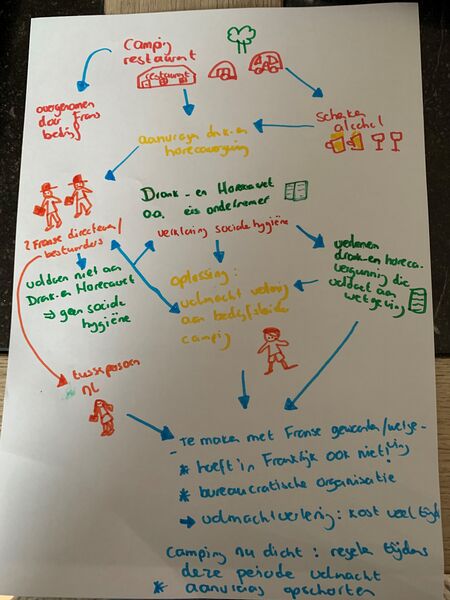 Camping
restaurant
restaurant
overgenomen
door Frans
bedrijf
schenken
alcohol
aanvragen drank-en
horecavergunning
2 Franse directeuren/
bestuurders
Drank-en Horecawet
o.a. eis ondernemer
verklaring sociale hygiëne
voldoen niet aan
Drank-en Horecawet
⇒ geen sociale
hygiëne
oplossing:
volmacht
aan bedrijfsleider
camping
verlenen
drank-en horeca-
vergunning die
voldoet aan
wetgeving
tussenpersoon
NL
- Te maken met Franse gewoonten/wetge-
ving
* hoeft in Frankrijk ook niet!
* bureaucratische organisatie
→ volmachtverlening: kost veel tijd
Camping nu dicht: regelen tijdens
deze periode volmacht
* aanvraag opschorten